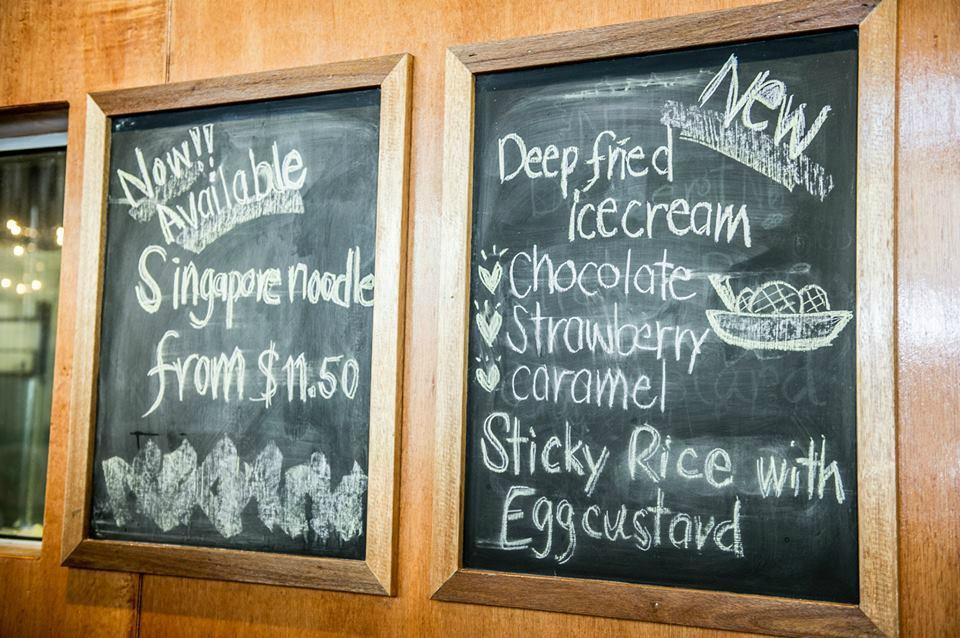 Now!!
Available
Singapore noodle
from $11.50
New
Deep fried
icecream
chocolate
Strawberry
caramel
Sticky Rice with
Egg custard